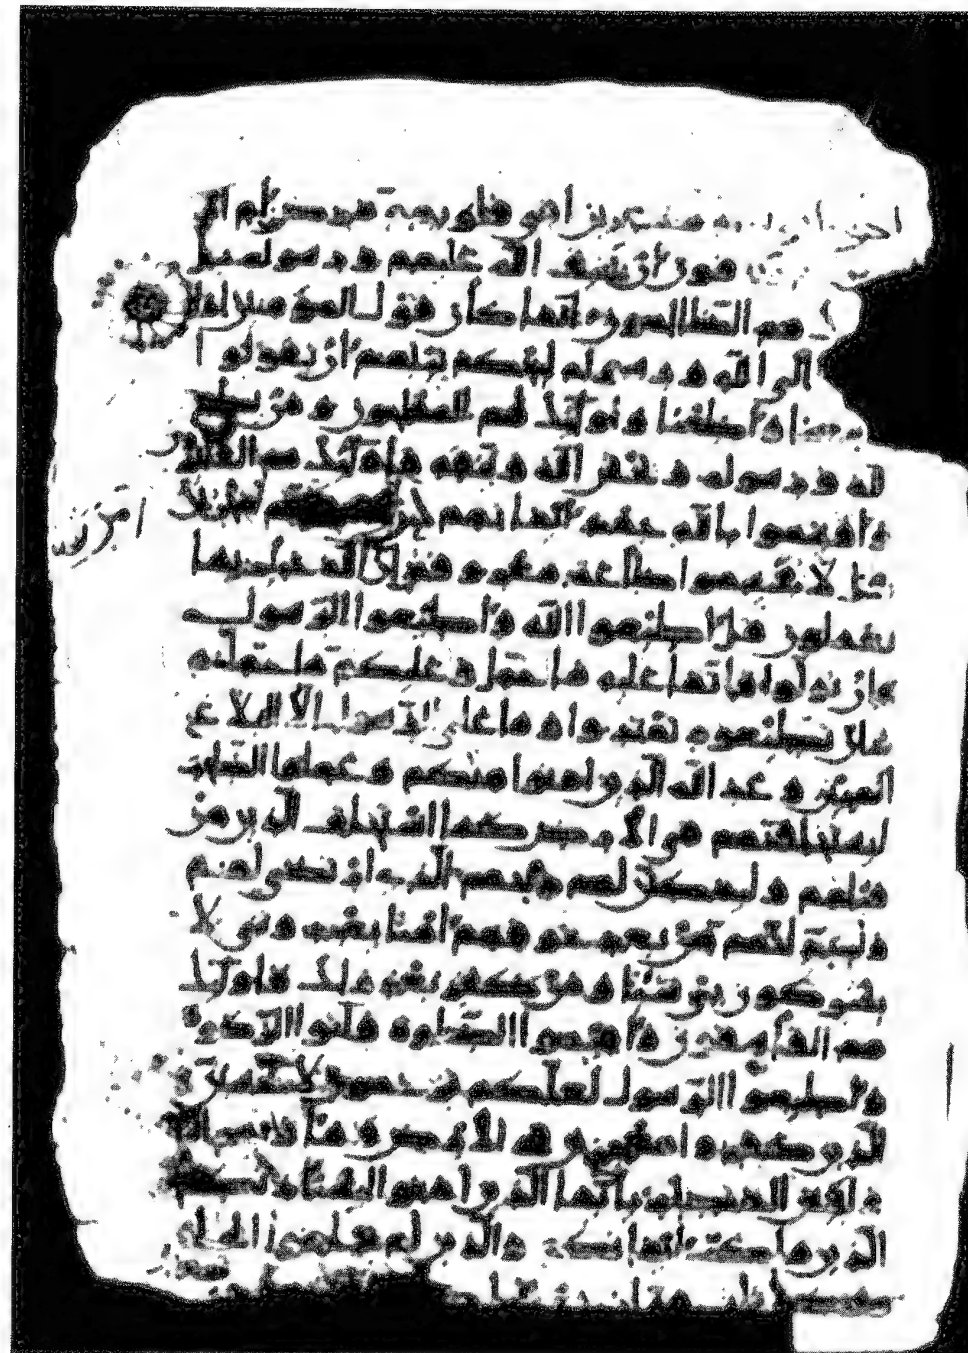 مذعنين افي قلوبهم مرض ام ار
فون ان يحيف الله عليهم ورسوله بل
هم الظالمون انما كان قول المؤمنين اذا
الى الله ورسوله ليحكم بينهم ان يقولوا
سمعنا واطعنا واولئك هم المفلحون ومن يطع
لله ورسوله ويخش الله ويتقه فاولئك هم الفائزون
واقسموا بالله جهد ايمانهم لئن امرتهم ليخرجن
قل لا تقسموا طاعة معروفة ان الله خبير بما
تعملون قل اطيعوا الله واطيعوا الرسول
فان تولوا فانما عليه ما حمل وعليكم ما حملتم
وان تطيعوه تهتدوا وما على الرسول الا البلاغ
المبين وعد الله الذين امنوا منكم وعملوا الصلحت
ليستخلفنهم في الارض كما استخلف الذين من
قبلهم وليمكنن لهم دينهم الذي ارتضى لهم
وليبدلنهم من بعد خوفهم امنا يعبدونني لا
يشركون بي شيئا ومن كفر بعد ذلك فاولئك
هم الفاسقون واقيموا الصلوة واتوا الزكوة
واطيعوا الرسول لعلكم ترحمون لا تحسبن
الذين كفروا معجزين في الارض وماويهم النار
ولبئس المصير يايها الذين امنوا ليستاذنكم
الذين ملكت ايمانكم والذين لم يبلغوا الحلم